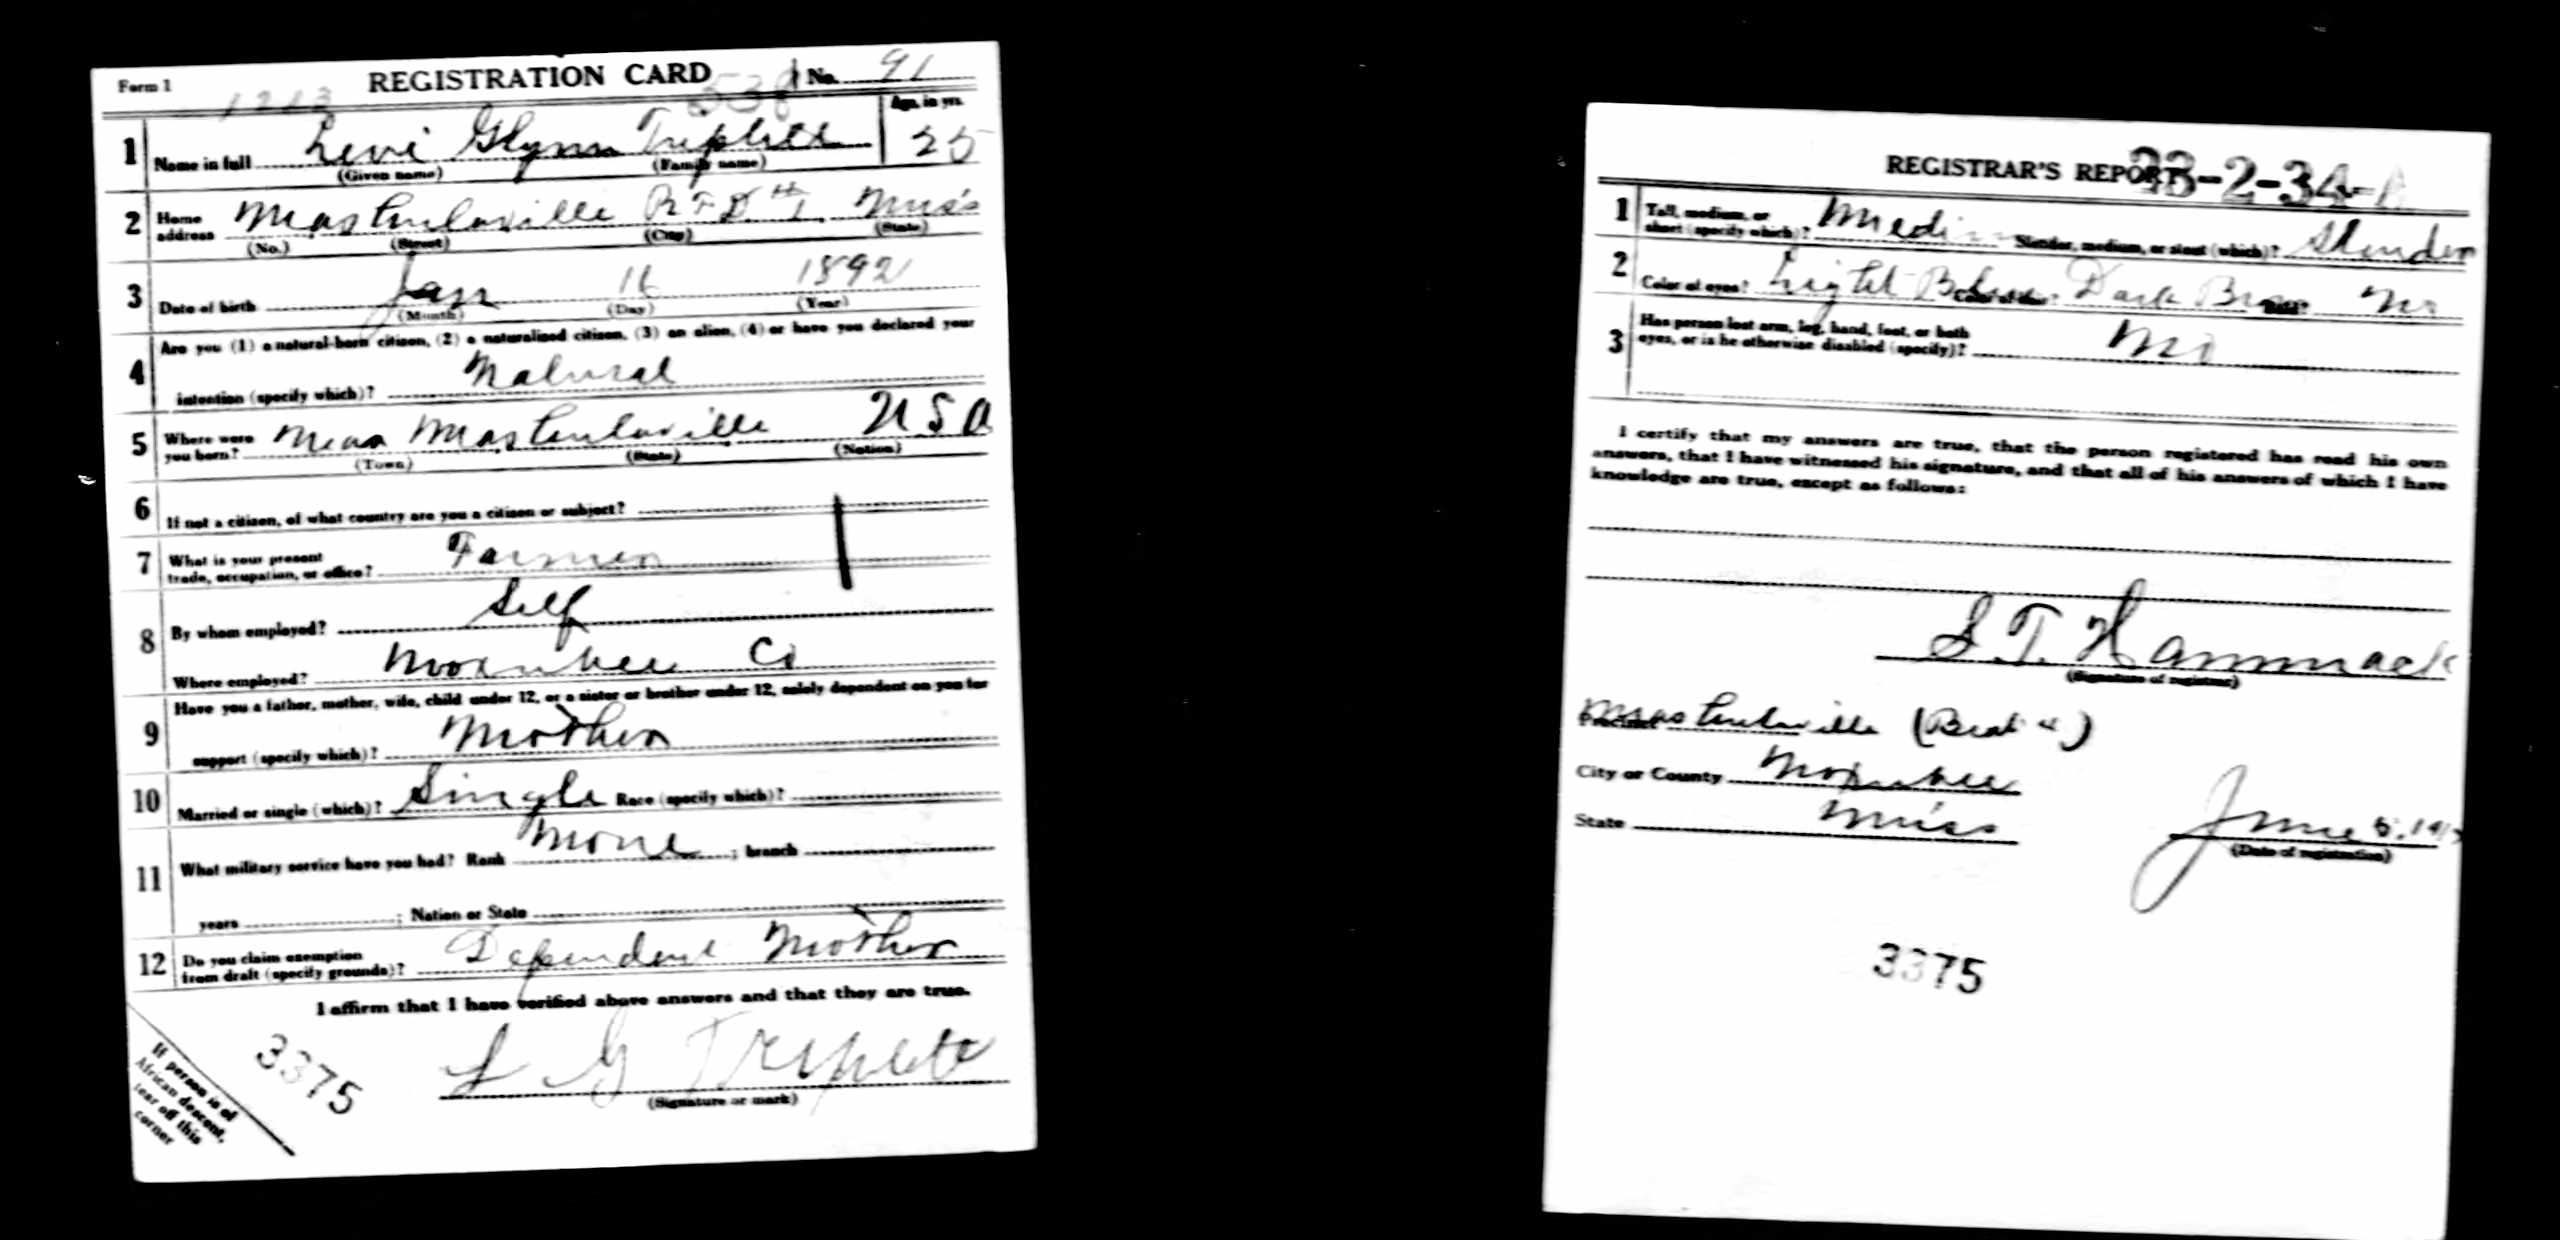 Form 1
1213
REGISTRATION CARD
538
No. 91
1 Name in full Levi Glynn Triplett
(Given name) (Family name)
Age, in yrs. 25
2 Home address Mashulaville R F D #1 Miss
(No.) (Street) (City) (State)
3 Date of birth Jan 16 1892
(Month) (Day) (Year)
4 Are you (1) a natural-born citizen, (2) a naturalized citizen, (3) an alien, (4) or have you declared your
intention (specify which)? Natural
5 Where were you born? Near Mashulaville U S A
(Town) (State) (Nation)
6 If not a citizen, of what country are you a citizen or subject?
7 What is your present trade, occupation, or office? Farmer
8 By whom employed? Self
Where employed? Noxubee Co
9 Have you a father, mother, wife, child under 12, or a sister or brother under 12, solely dependent on you for
support (specify which)? Mother
10 Married or single (which)? Single Race (specify which)?
11 What military service have you had? Rank None ; branch
years ; Nation or State
12 Do you claim exemption from draft (specify grounds)? Dependent Mother
I affirm that I have verified above answers and that they are true.
L G Triplett
(Signature or mark)
If person is of
African descent,
tear off this
corner
3375
REGISTRAR'S REPORT
1 Tall, medium, or short (specify which)? Medium Slender, medium, or stout (which)? Slender
2 Color of eyes? Light Blue Color of hair? Dark Brown Bald? No
3 Has person lost arm, leg, hand, foot, or both
eyes, or is he otherwise disabled (specify)? No
I certify that my answers are true, that the person registered has read his own
answers, that I have witnessed his signature, and that all of his answers of which I have
knowledge are true, except as follows:
S. T. Hammack
(Signature of registrar)
Precinct Mashulaville (Beat 4)
City or County Noxubee
State Miss
June 5, 1917
(Date of registration)
3375